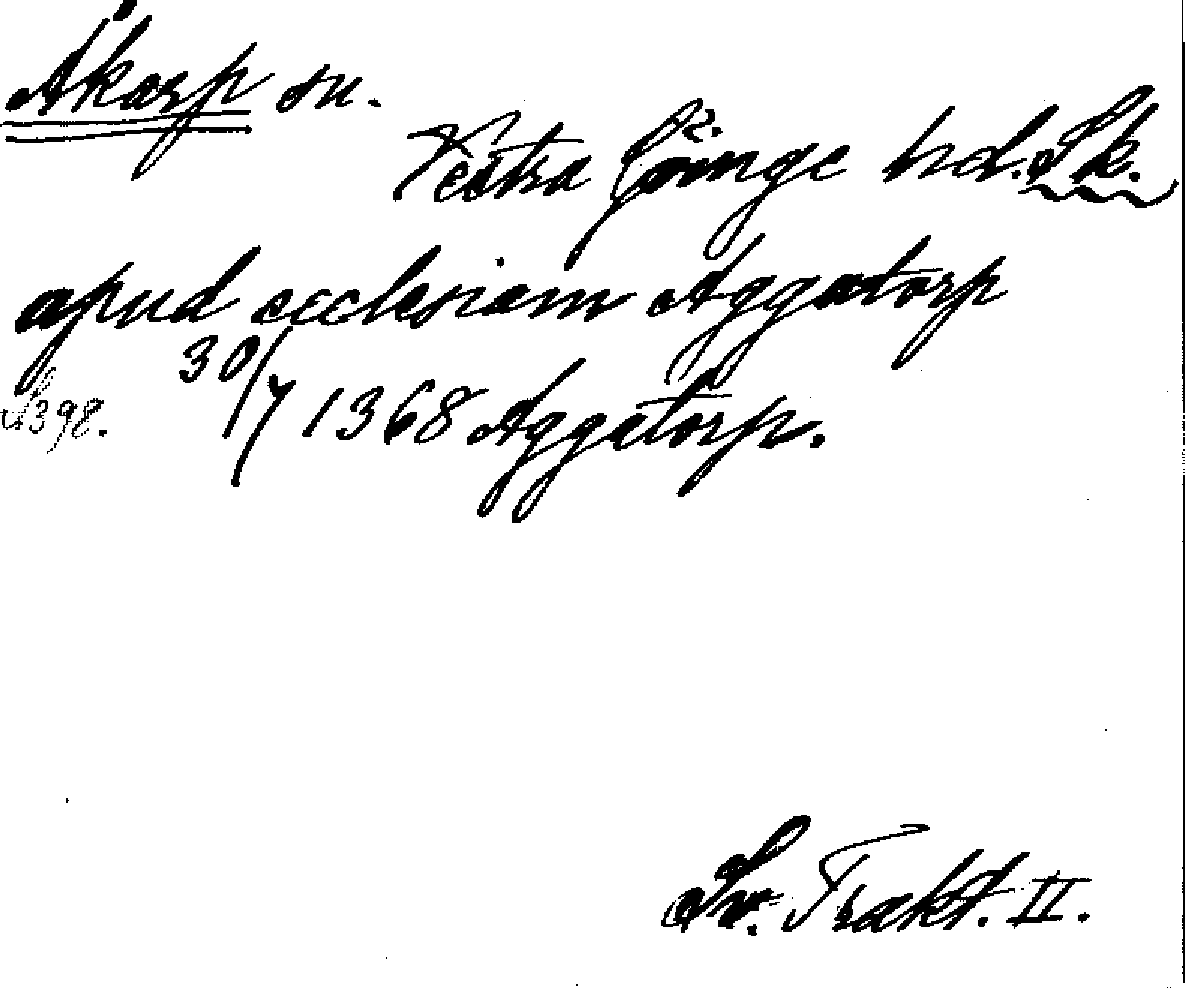 Åkarp sn.
Västra Göinge hrd. Sk.
apud ecclesiam Aggatorp
30/7 1368 Aggatorp.
S. 398.
Sv. Trakt. II.